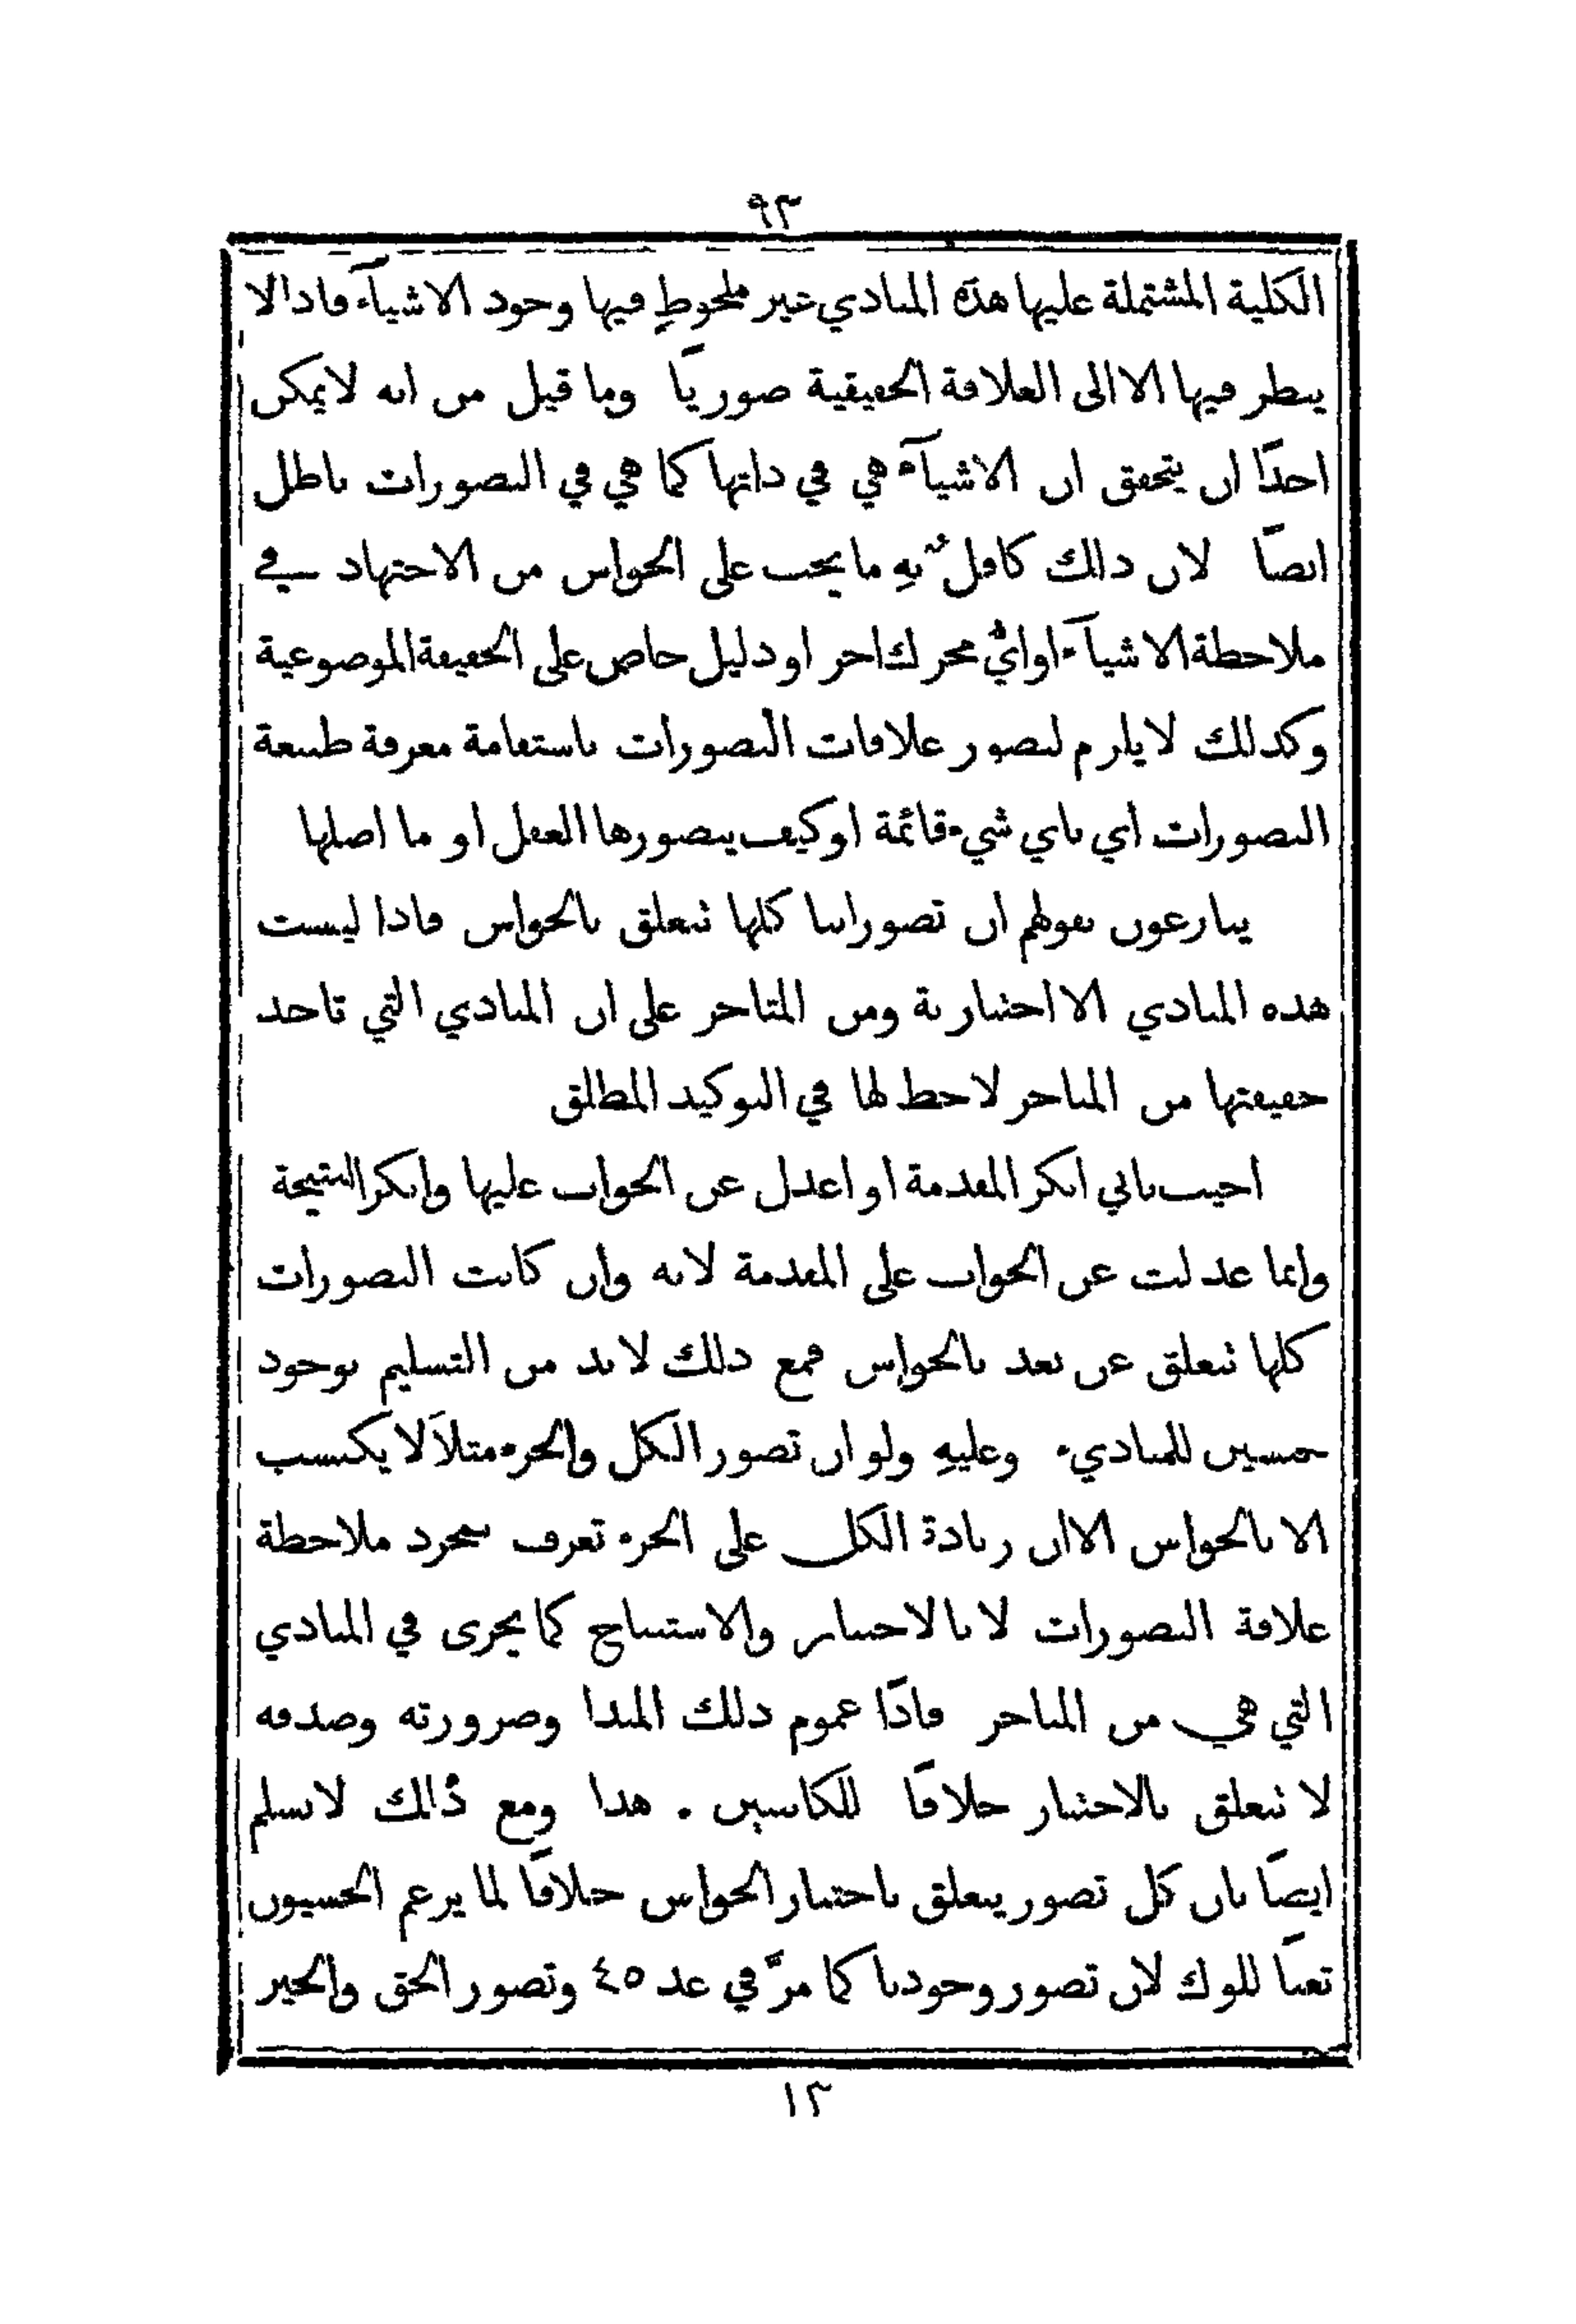 ٩٣
الكلية المشتملة عليها هذه المبادي غير ملحوظٍ فيها وجود الاشيآء فاذا لا
ينظر فيها الا الى العلاقة الحقيقية صوريًا وما قيل من انه لا يمكن
احدًا ان يتحقق ان الاشيآء هي في ذاتها كما هي في التصورات باطل
ايضًا لان ذالك كافلٌ بهِ ما يجب على الحواس من الاجتهاد في
ملاحظة الاشيآء او ايُّ محرك اخر او دليل خاص على الحقيقة الموضوعية
وكذلك لا يلزم لتصور علاقات التصورات باستقامة معرفة طبيعة
التصورات اي باي شيء قائمة او كيف يتصورها العقل او ما اصلها
ينازعون بقولهم ان تصوراتنا كلها تتعلق بالحواس فاذا ليست
هذه المبادي الا اختبارية ومن المتاخر على ان المبادي التي تاخذ
حقيقتها من المتاخر لا حظ لها في التوكيد المطلق
اجيب باني انكر المقدمة او اعدل عن الجواب عليها وانكر النتيجة
وانما عدلت عن الجواب على المقدمة لانه وان كانت التصورات
كلها تتعلق عن بعد بالحواس فمع ذلك لا بد من التسليم بوجود
جنسين للمباديء وعليهِ ولو ان تصور الكل والجزء مثلاً لا يكتسب
الا بالحواس الا ان زيادة الكل على الجزء تعرف بمجرد ملاحظة
علاقة التصورات لا بالاختبار والاستنتاج كما يجرى في المبادي
التي هي من المتاخر فاذًا عموم ذلك المبدا وضرورته وصدقه
لا تتعلق بالاختبار خلافًا للكانتيين . هذا ومع ذٰلك لا نسلم
ايضًا بان كل تصور يتعلق باختبار الحواس خلافًا لما يزعم الحسيون
تبعًا للوك لان تصور وجودنا كما مرَّ في عد ٤٥ وتصور الحق والخير
١٣